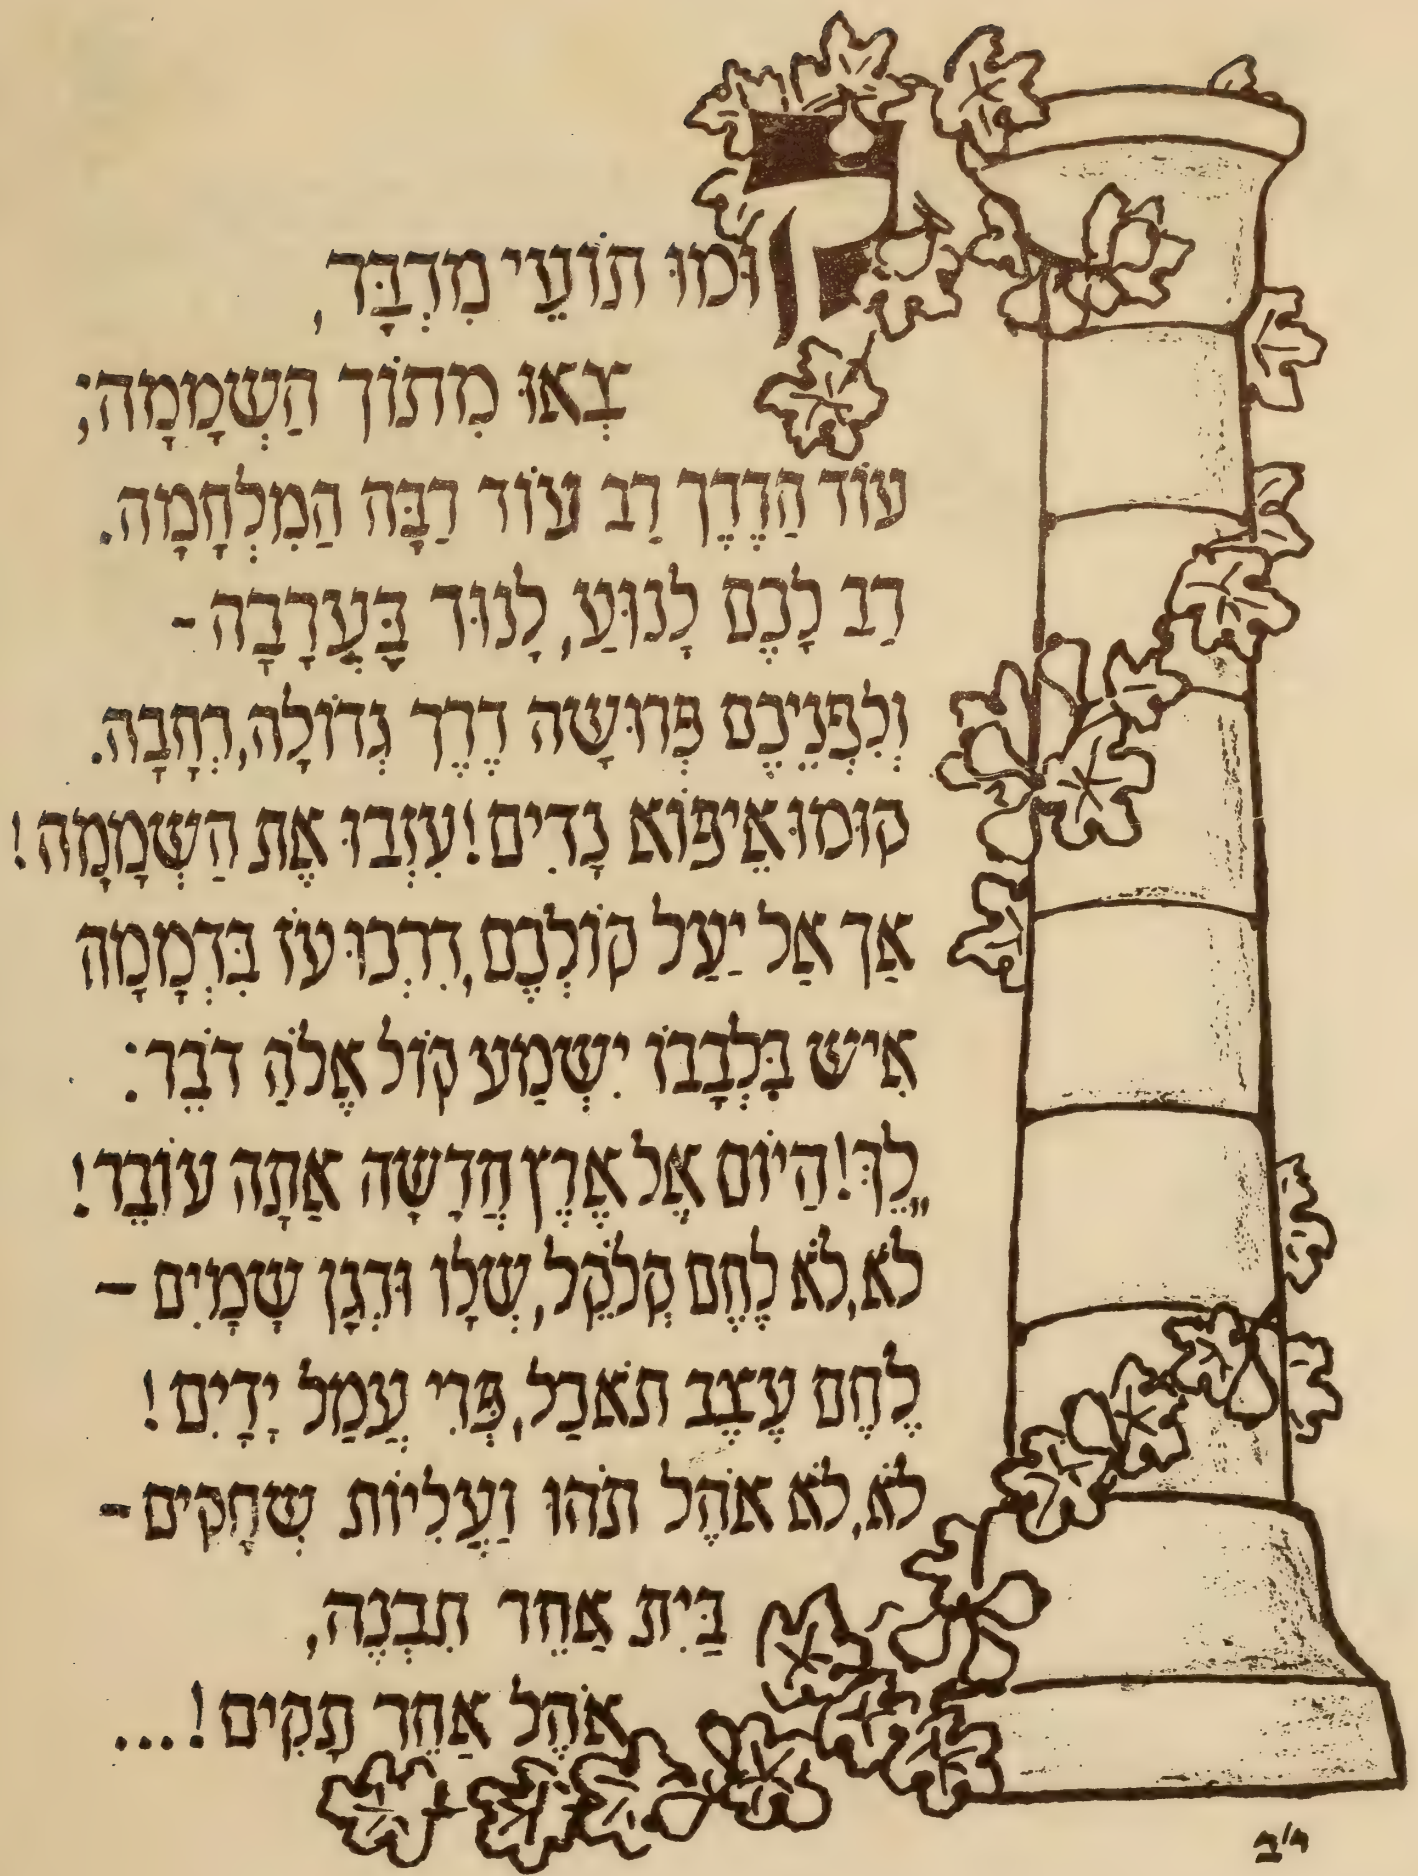 קוּמוּ תוֹעֵי מִדְבָּר,
צְאוּ מִתּוֹךְ הַשְּׁמָמָה;
עוֹד הַדֶּרֶךְ רַב עוֹד רַבָּה הַמִּלְחָמָה.
רַב לָכֶם לָנוּעַ, לָנוּד בָּעֲרָבָה -
וְלִפְנֵיכֶם פְּרוּשָׂה דֶּרֶךְ גְּדוֹלָה, רְחָבָה.
קוּמוּ אֵיפוֹא נָדִים! עִזְבוּ אֶת הַשְּׁמָמָה!
אַךְ אַל יַעַל קוֹלְכֶם, דִּרְכוּ עֹז בִּדְמָמָה
אִישׁ בִּלְבָבוֹ יִשְׁמַע קוֹל אֱלֹהַּ דֹּבֵר:
„לֵךְ! הַיּוֹם אֶל אֶרֶץ חֲדָשָׁה אַתָּה עוֹבֵר!
לֹא, לֹא לֶחֶם קְלֹקֵל, שְׂלָו וּדְגַן שָׁמָיִם -
לֶחֶם עֶצֶב תֹּאכַל, פְּרִי עֲמַל יָדָיִם!
לֹא, לֹא אֹהֶל תֹּהוּ וַעֲלִיּוֹת שְׁחָקִים -
בַּיִת אַחֵר תִּבְנֶה,
אֹהֶל אַחֵר תָּקִים!...
י"ב